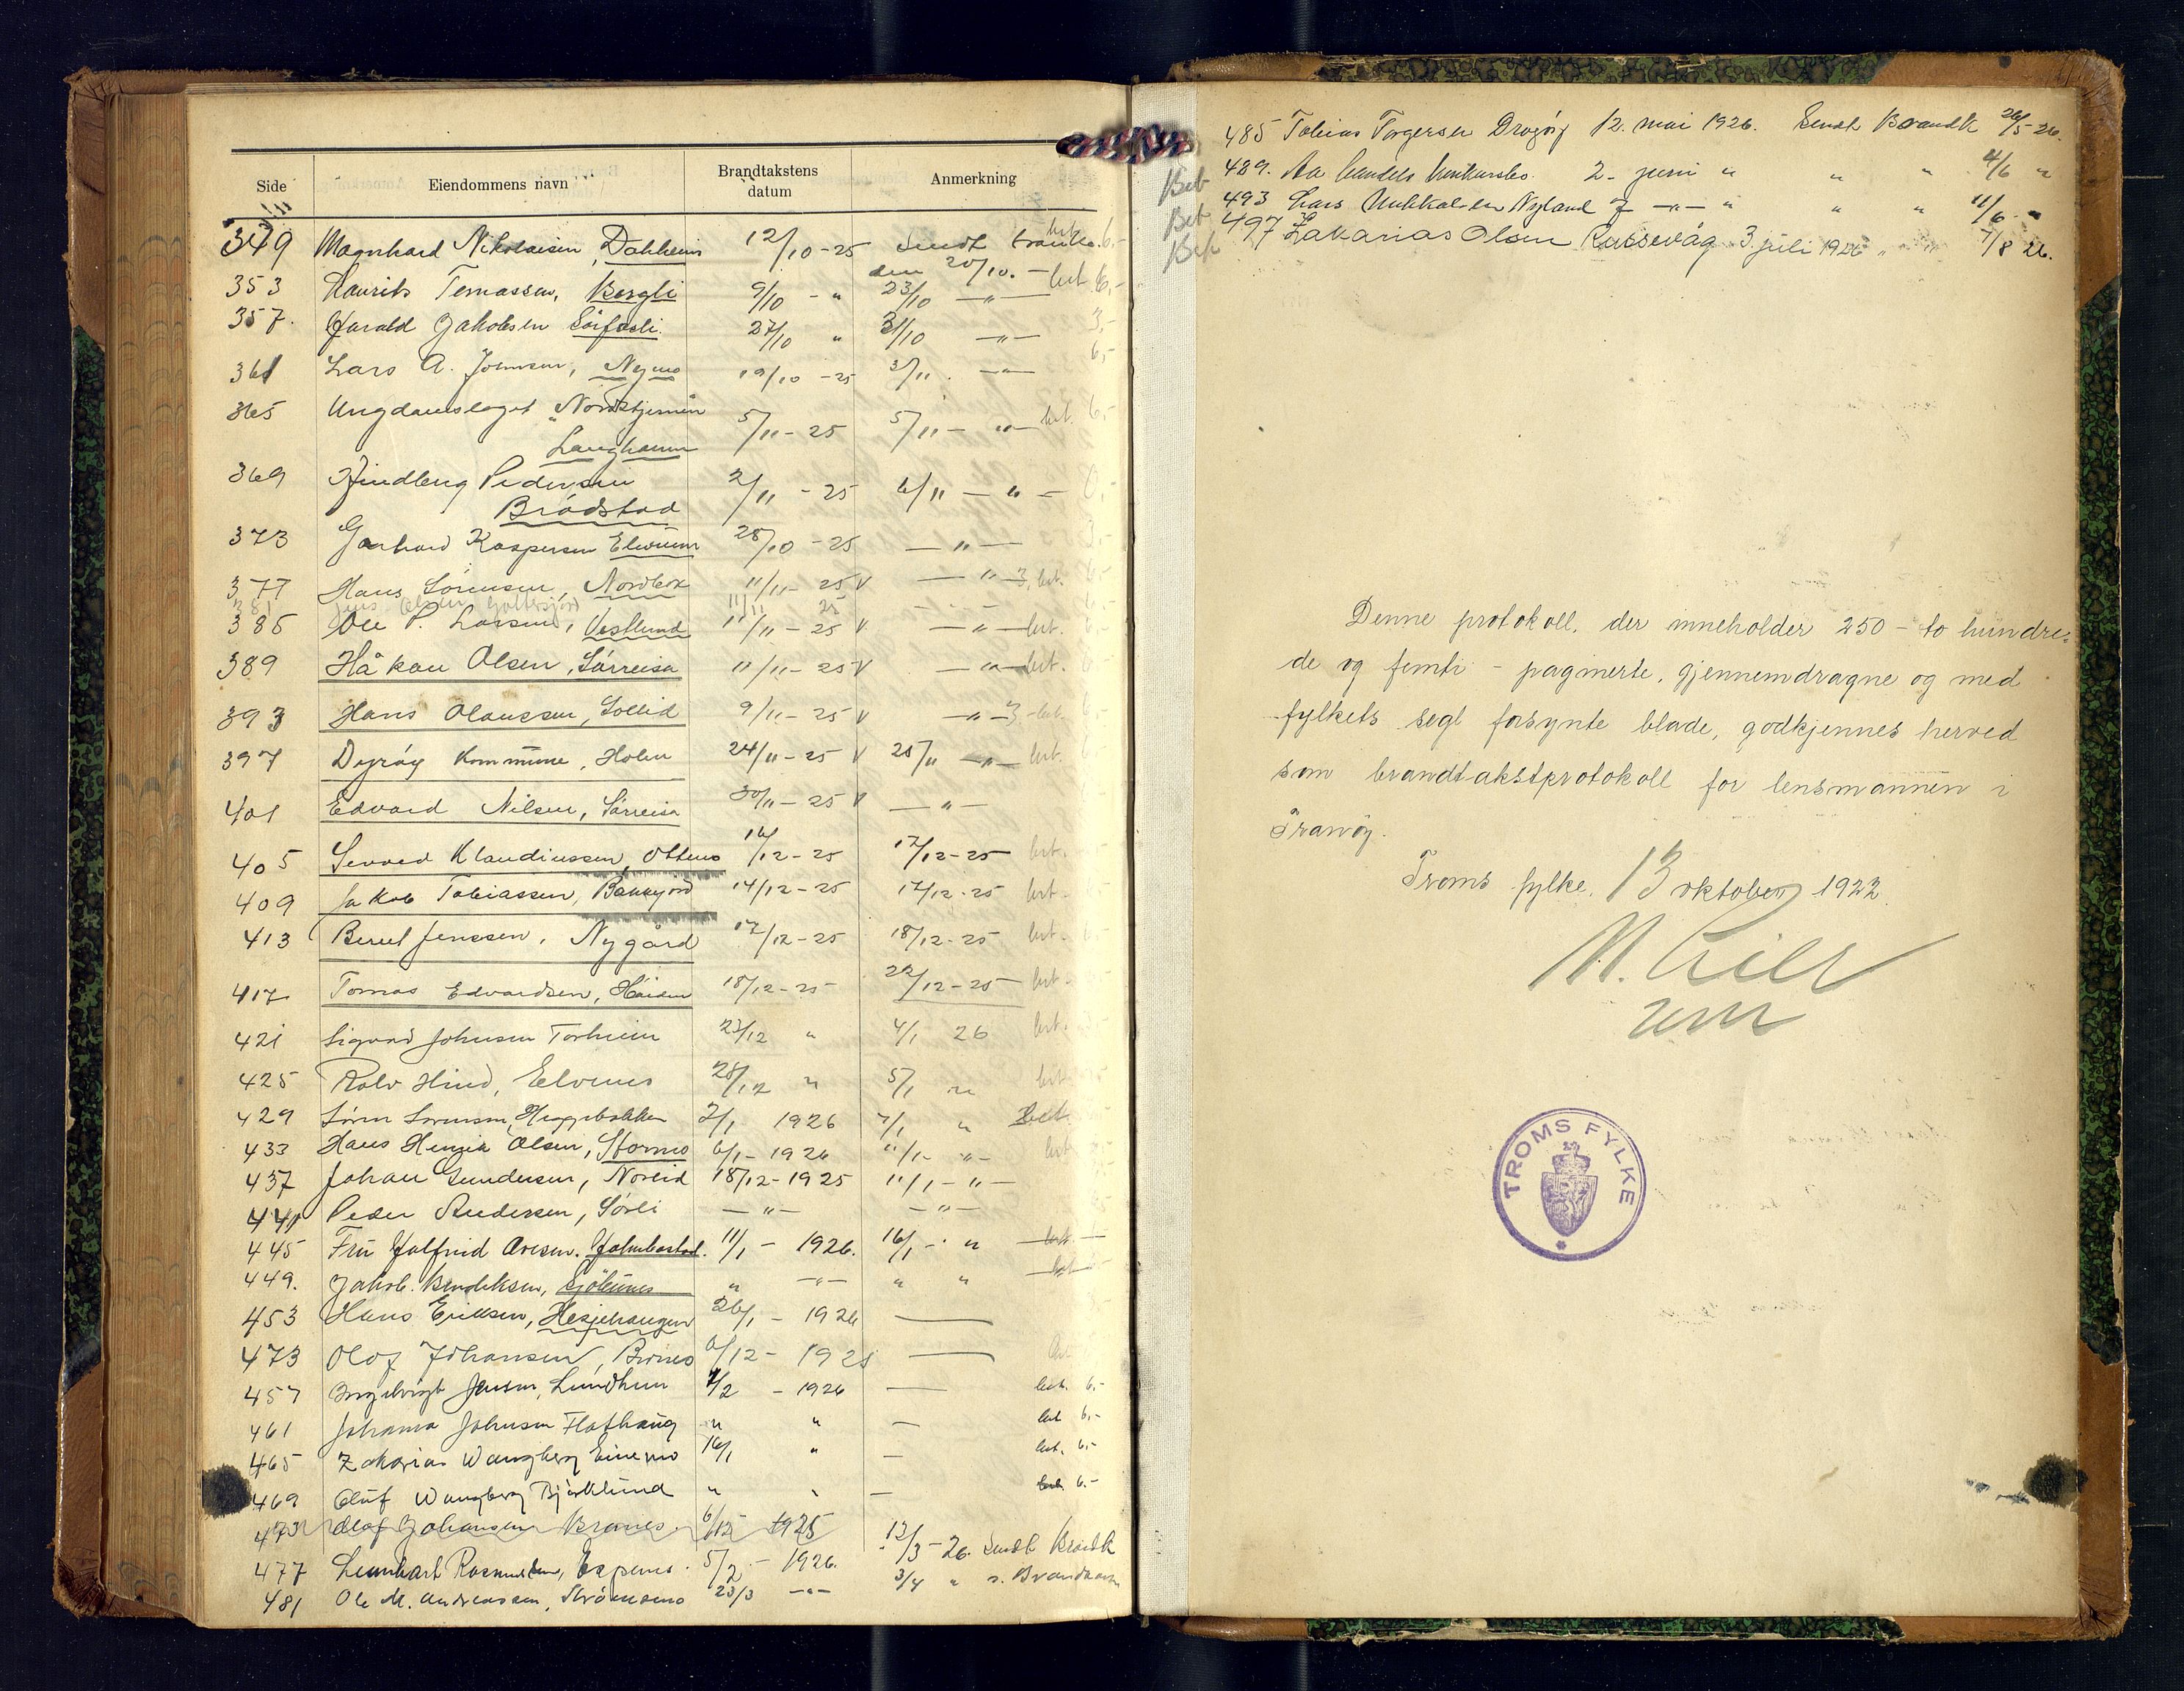 Side Eiendommens navn Brandtakstens datum Anmerkning
349 Magnhard Nikolaisen, Dahlheim 12/10-25 Sendt brandk. bet. 6,-
den 20/10. - bet 6,-
353 Laurits Tomassen, Bergli 9/10 - " 23/10 — " —
357. Harald Jakobsen Sörfjosli. 27/10 " 31/10 — " — 3,-
361 Lars A. Johnsen, Nymo 19/10 - 25 3/11. — " — 6,-
365 Ungdomslaget "Nordstjernen" 5/11 - 25 5/11 - " - bet. 6,-
Langhamn
369 Lindberg Pedersen 2/11 - 25 6/11 — " —
Brödstad
373 Gerhard Kaspersen Elvenes 28/10 - 25 — " —
377 Hans Sörensen, Nordbek 11/11 - 25 V — " — 3, bet.
381 Jens Olsen 11/11 25
385 Ole P. Larsen, Vestlund 11/11 - 25 V — " — bet.
389 Håkon Olsen, Sörreisa 11/11 - 25 V — " — bet.
393 Hans Olaussen, Sollid 9/11 - 25 V — " — 3,- bet.
397 Dyröy Kommune, Holm 24/11 - 25 V 25/11 — " — bet.
401 Edvard Nilsen, Sörreisa 30/11 - 25 V — " —
405 Klaudiussen, Ottens 16/12 - 25 17/12 - 25 bet.
409 Jakob Tobiassen, Bakkejord 14/12 - 25 17/12 - 25 bet.
413 Berul Jenssen, Nygård 17/12 - 25 18/12 - 25 bet.
417 Tomas Edvardsen, 18/12 - 25 22/12 - 25 bet.
421 Sigvard Johnsen Torheim 23/12 " 4/1 26 bet.
425 Rolv Hind, Elvenes 28/12 " 5/1 " bet.
429 Sörensen, Heggebakken 2/1 1926 7/1 " bet.
433 Hans Henrik Olsen, Stormo 6/1 - 1926 11/1 - " - bet
437 Johan Gundersen, Norlid 18/12 - 1925 11/1 - " -
441 Peder Andersen, Sörli — " — — " —
445 Frú Halfrid Aresen. Holmbostad. 11/1 - 1926. 16/1 - " bet
449. Jakob. Bendiksen, Sjötunes " — " — " " bet
453 Hans Eriksen, Hesjehaugen 26/1 - 1926 —
473 Olaf Johansen, Brones 6/12 - 1925 —
457 Ingebrigt Jensen, Lundheim 1/2 - 1926 — bet. 6,-
461 Johanna Johnsen Flathaug " " — bet 6,-
465 Zakarias Wangberg Einemo 16/1 " — bet. 6,-
469 Oluf Wangberg Björklund " " — bet. 6.-
473 Olaf Johansen Brones. 6/12 1925
477 Lennhart Rasmussen, Espenes. 5/2 - 1926. 12/3 - 26. Sendt Brandk
481 Ole M. Andreassen, Strömsmo 23/3 — " — 3/4 " s.
485 Tobias Torgersen Dragöy 12. mai 1926. Sendt Brandk 26/5 - 26.
Bet 489. Aa Handels 2. juni " " " 4/6 "
Bet 493 Lars Nyland 7 — " — " " " 11/6 - "
Bet 497 Zakarias Olsen 3 juli 1926 " " 7/8 26.
Denne protokoll, der inneholder 250 - to hundre-
de og femti - paginerte, gjennemdragne og med
fylkets segl forsynte blade, godkjennes herved
som brandtakstprotokoll for lensmannen i
Tranöy.
Troms fylke, 13 oktober 1922.
TROMS FYLKE